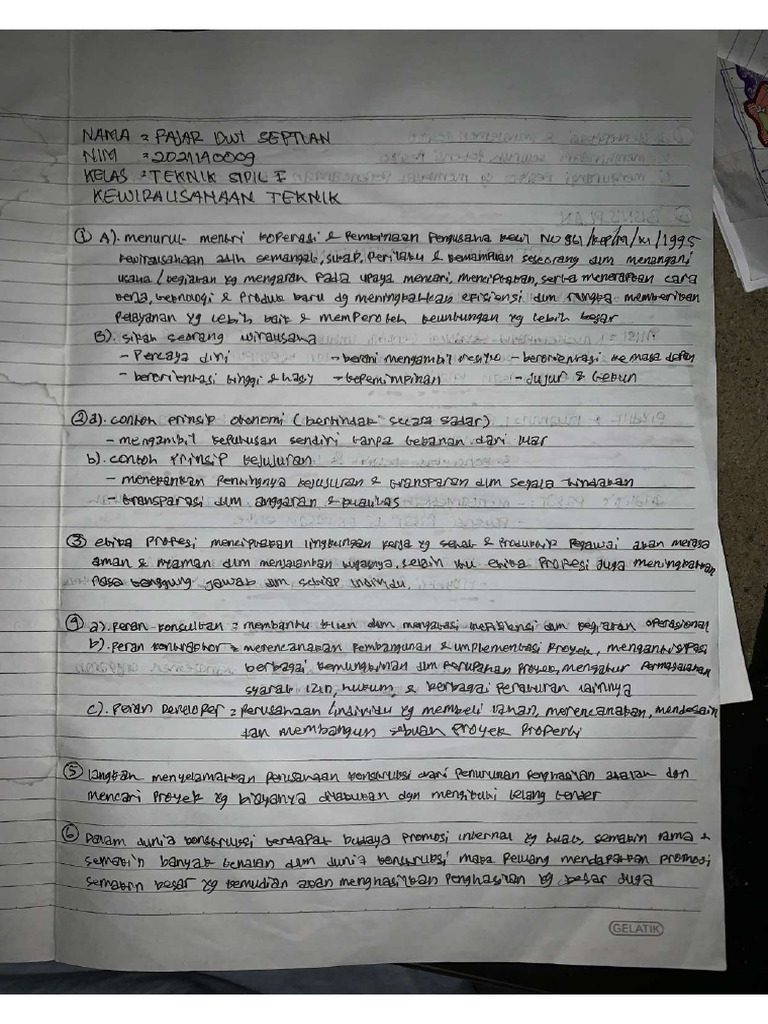 NAMA = FAJAR DWI SEPTIAN
NIM = 2021140009
KELAS = TEKNIK SIPIL I
KEWIRAUSAHAAN TEKNIK
① A). menurut mentri koperasi & Pembinaan Pengusaha kecil NO 961/KEP/M/XI/1995
kewirausahaan adlh semangat, sikap, Perilaku & kemampuan seseorang dlm menangani
usaha / kegiatan yg mengarah Pada upaya mencari, menciptakan, serta menerapkan cara
kerja, teknologi & Produk baru dg meningkatkan efisiensi dlm rangka memberikan
Pelayanan yg lebih baik & memperoleh keuntungan yg lebih besar
B). sifat seorang wirausaha
- Percaya diri - berani mengambil resiko - berorientasi ke masa depan
- berorientasi tinggi & hasil - kepemimpinan - jujur & tekun
② a). contoh prinsip otonomi (bertindak secara sadar)
- mengambil keputusan sendiri tanpa tekanan dari luar
b). contoh Prinsip kejujuran
- menekankan Pentingnya kejujuran & transparan dlm segala tindakan
- transparasi dlm anggaran & kualitas
③ etika Profesi menciptakan lingkungan kerja yg sehat & Produktif Pegawai akan merasa
aman & nyaman dlm menjalankan tugasnya, selain itu etika Profesi juga meningkatkan
rasa tanggung jawab dlm setiap individu.
④ a). Peran konsultan = membantu klien dlm mengatasi inefisiensi dlm kegiatan operasional
b). Peran kontraktor = merencanakan Pembangunan & implementasi Proyek, mengantisipasi
berbagai kemungkinan dlm Perubahan Proyek, mengatur Permasalahan
syarat izin, hukum, & berbagai Peraturan lainnya
c). Peran Developer = Perusahaan /individu yg membeli lahan, merencanakan, mendesain
dan membangun sebuah Proyek Properti
⑤ langkah menyelamatkan Perusahaan konstruksi dari Penurunan Penghasilan adalah dgn
mencari Proyek yg biayanya dilakukan dgn mengikuti lelang tender
⑥ Dalam dunia konstruksi terdapat budaya Promosi internal yg kuat, semakin lama &
semakin banyak kenalan dlm dunia konstruksi maka Peluang mendapatkan promosi
semakin besar yg kemudian akan menghasilkan Penghasilan yg besar juga
GELATIK